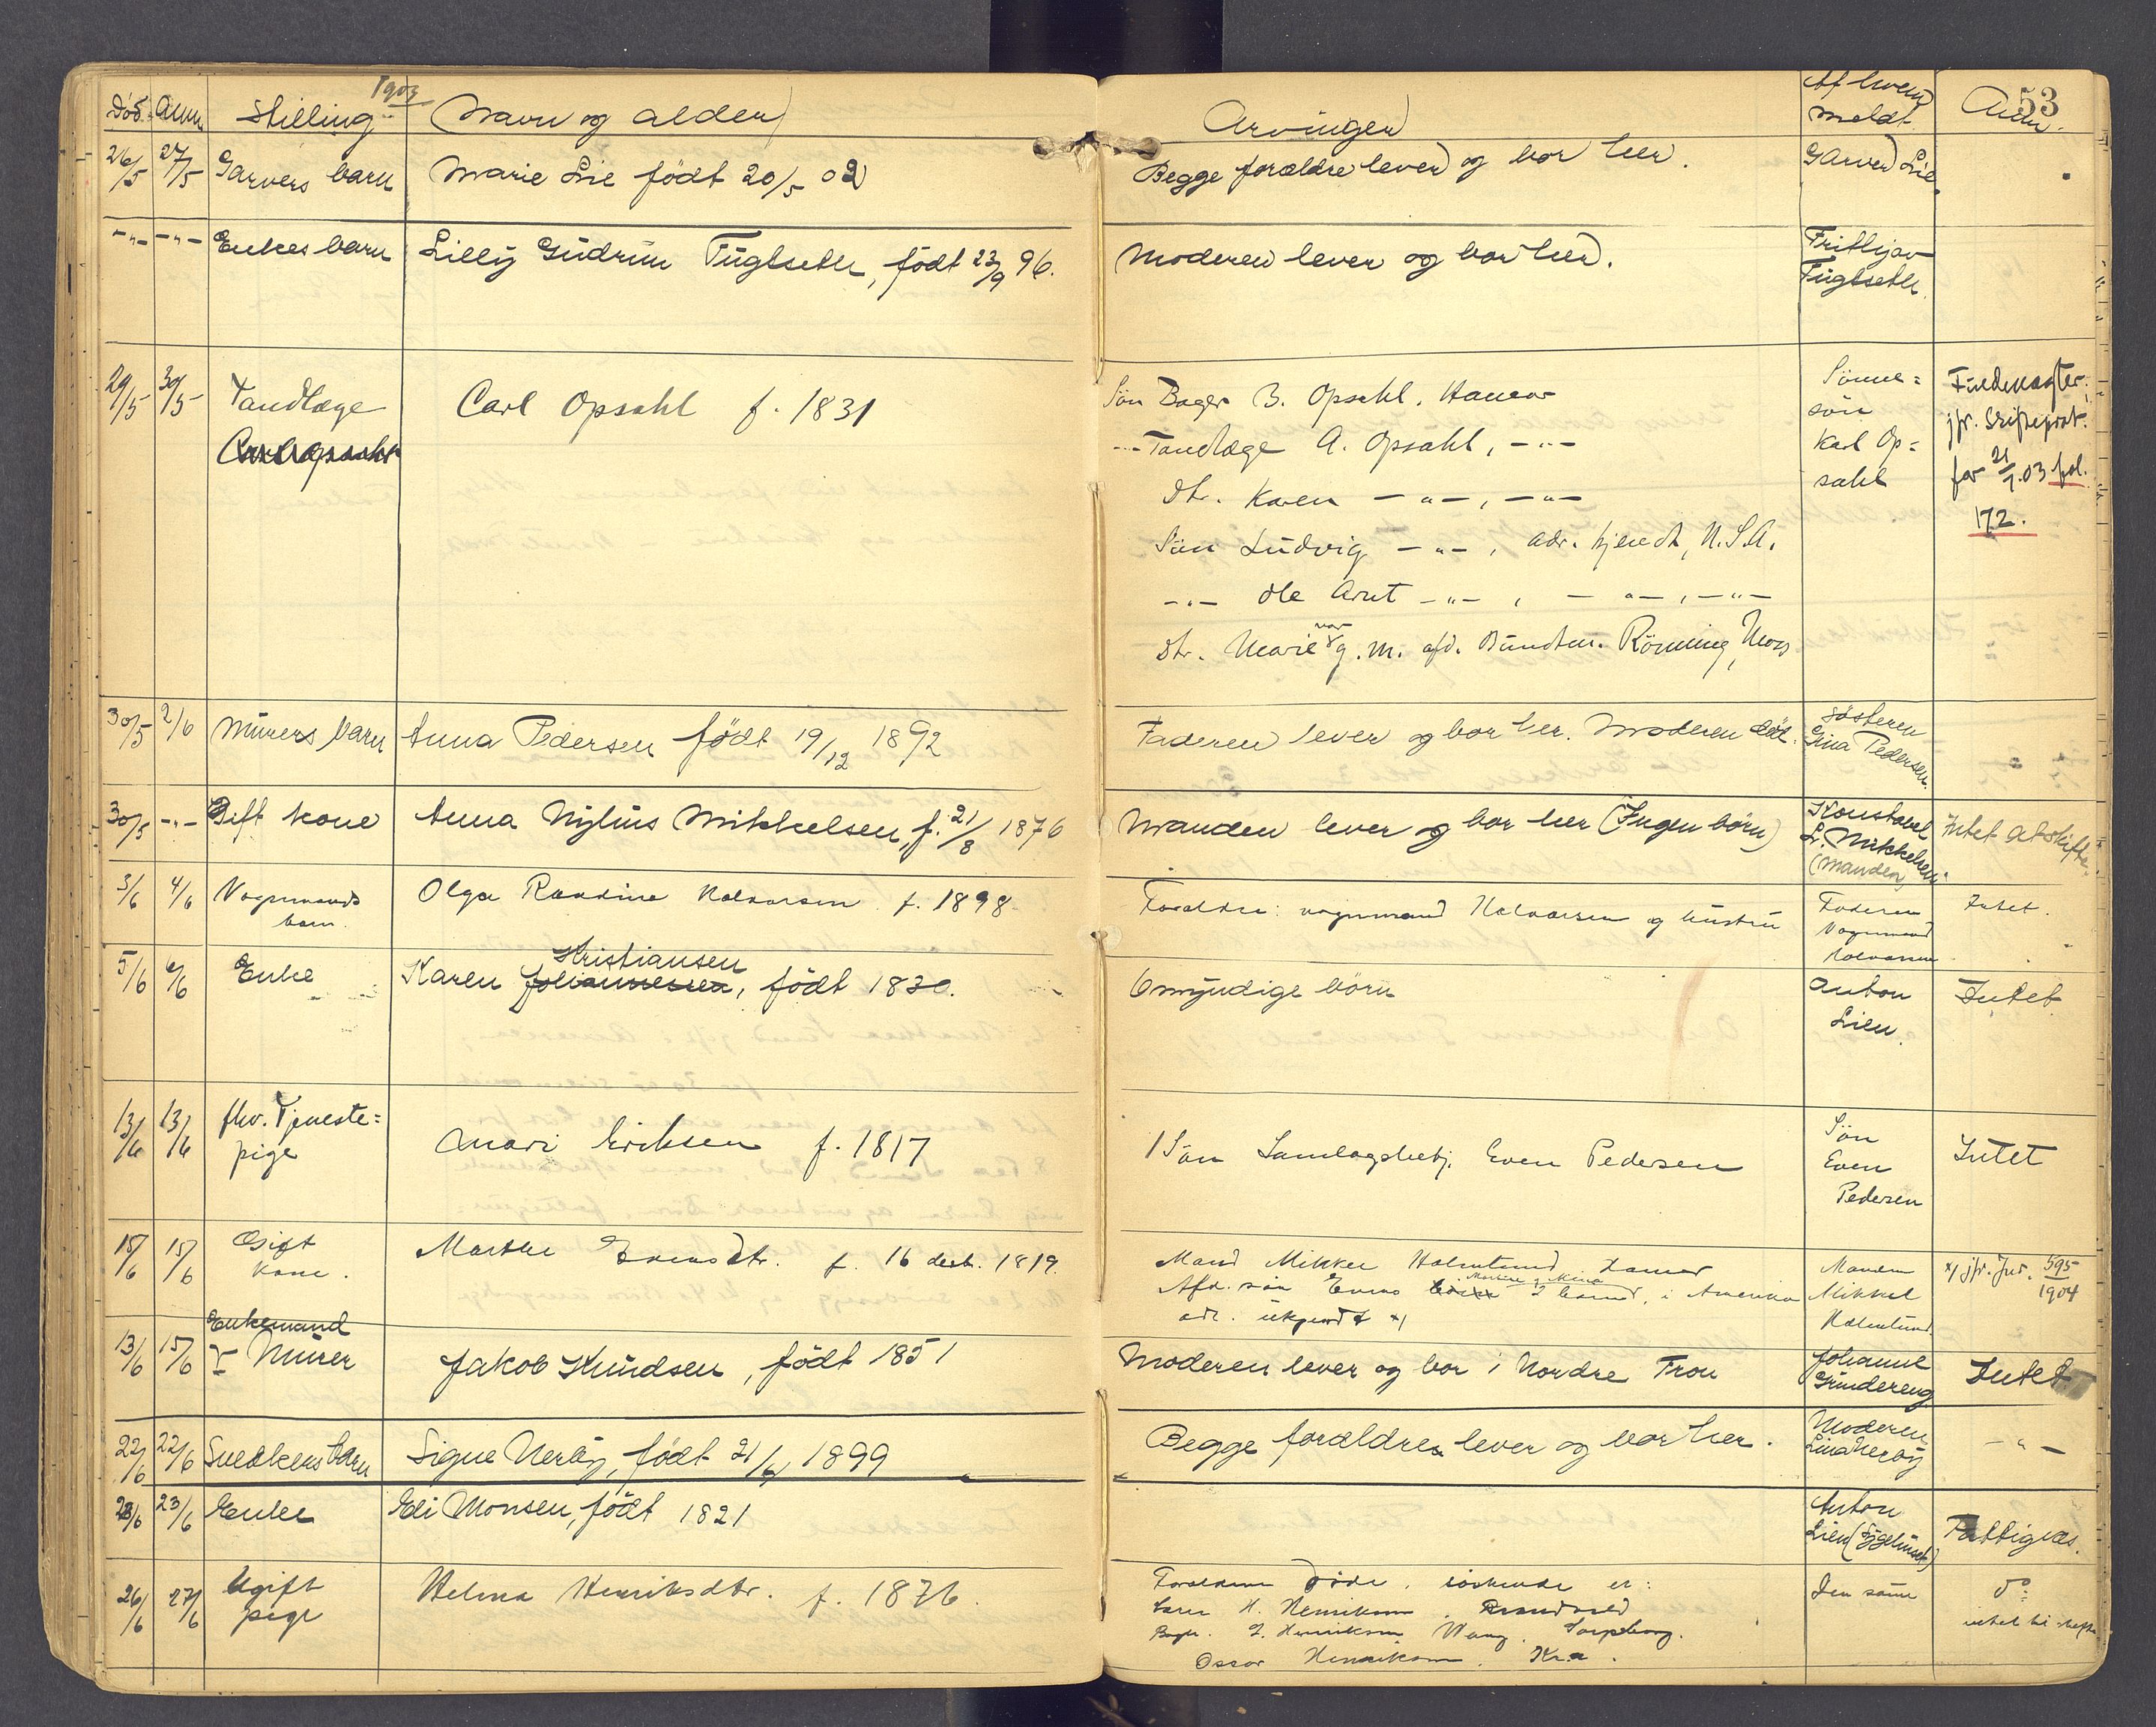 1903
53
Död. Anm. Stilling Navn og alder Arvinger Af hvem
meldt. Anm.
26/5 27/5 Garvers barn Marie Lie födt 20/5 02 Begge forældre lever og bor her. Garver Lie.
-"- -"- Enkes barn Lilly Gudrun Fugtseth, födt 23/9 96. Moderen lever og bor her. Frithjov
Fugtseth.
29/5 30/5 Tandlæge Carl Opsahl f. 1831 Sön Bager B. Opsahl. Hamar
-"- Tandlæge A. Opsahl, -"-
Dtr. Karen -"-, -"-
Sön Ludvig -"-, adr. kjendt, U.S.A.
-"- Ole Arnt -"-, -"-, -"-
Dtr. Marie var g. m. afd. Bundtm. Rönning, Moss
Sönne=
sön
Karl Op=
sahl
Fuldmagter.
jfr. Skifteprot.
for 21/7.03 fol.
172.
30/5 2/6 Murers barn Anna Pedersen födt 19/12 1892 Faderen lever og bor her. Moderen död. Sösteren
Gina Pedersen.
30/5 -"- Gift kone Anna Nylius Mikkelsen, f. 21/8 1876 Manden lever og bor her (Ingen börn) Konstabel
L. Mikkelsen
(manden) Intet at skifte
3/6 4/6 Vognmands
barn. Olga Randine Halvorsen f. 1898. Forældre: vognmand Halvorsen og hustru Faderen
Vognmand
Halvorsen Intet.
5/6 6/6 Enke Karen Johannessen Kristiansen, födt 1830. 6 myndige börn Anton
Lien. Intet.
13/6 13/6 fhv. Tjeneste=
pige Mari Eriksen f. 1817 1 Sön Samlagsbetj. Even Pedersen Sön
Even
Pedersen Intet
15/6 15/6 Gift
kone. Marthe Evensdtr. f. 16 decb. 1819. Mand Mikkel Holmlund Hamar
Afd. sön Evens 2 börn, Martin og Mina i Amerika
adr. ukjendt x)
Manden
Mikkel
Holmlund. x) jfr. Jur. 595/1904
13/6 15/6 Enkemand
Murer Jakob Knudsen, födt 1851 Moderen lever og bor i Nordre Fron Johanne
Grundereng Intet
22/6 22/6 Snedkers barn Signe Nerby, födt 21/6 1899 Begge forældre lever og bor her. Moderen
Lina Nerby -"-
23/6 23/6 Enke Eli Monsen, födt 1821 Anton
Lien (Sygehuset) Fattigvæs.
26/6 27/6 Ugift
pige Helma Henriksdtr. f. 1876. Forældrene döde. söskende er:
H. Henriksen
Henriksen Vang. Sarpsborg.
Oscar Henriksen. Kr.a.
Den samme do
intet til skifte